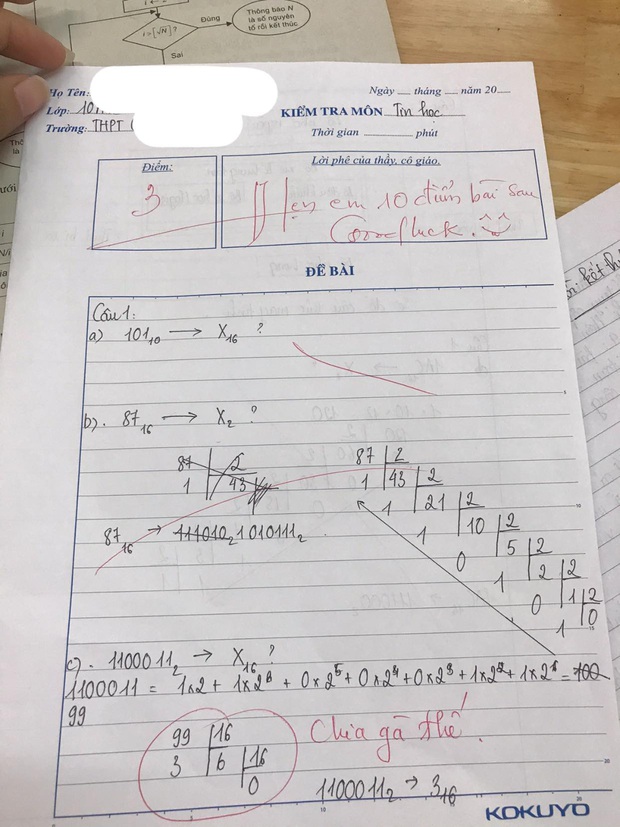 i > [√N]?
Đúng
Thông báo N
là số nguyên
tố rồi kết thúc
Sai
Họ Tên:
Ngày ___ tháng ___ năm 20___
Lớp: 101
KIỂM TRA MÔN: Tin học
Trường: THPT
Thời gian ________ phút
Điểm:
Lời phê của thầy, cô giáo.
3
Hẹn em 10 điểm bài sau
Good luck.
ĐỀ BÀI
Câu 1:
a) 101₁₀ → X₁₆ ?
b). 87₁₆ → X₂ ?
87 2
1 43
87 2
1 43 2
1 21 2
1 10 2
0 5 2
1 2 2
0 1 2
1 0
87₁₆ → 111010₂ 1010111₂
c). 1100011₂ → X₁₆ ?
1100011 = 1x2 + 1x2⁶ + 0x2⁵ + 0x2⁴ + 0x2³ + 1x2² + 1x2¹ = 100
99
99 16
3 6 16
0
Chia gà thế!
1100011₂ → 3₁₆
KOKUYO